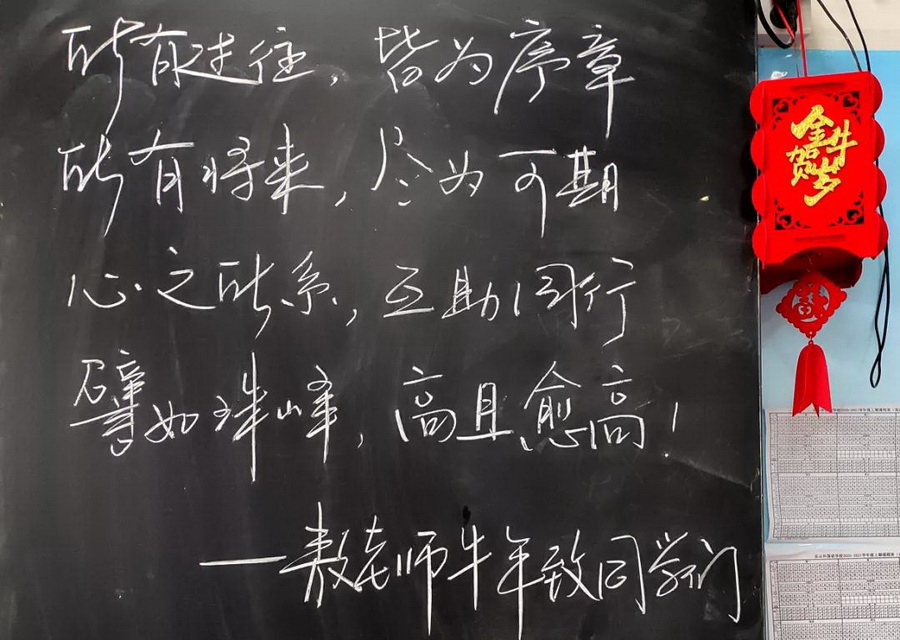 所有过往，皆为序章
所有将来，尽为可期
心之所系，互助同行
譬如珠峰，高且愈高！
——敖老师牛年致同学们
金牛
贺岁